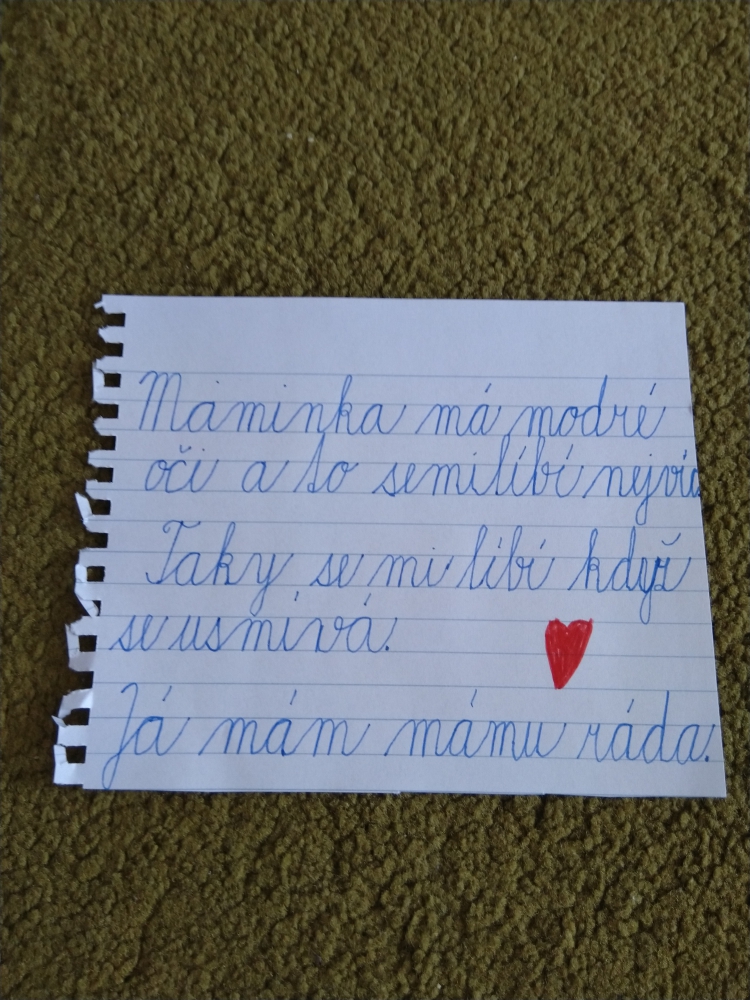 Maminka má modré
oči a to semilíbí nejvíc
Taky se mi líbí když
se usmívá.
Já mám mámu ráda.